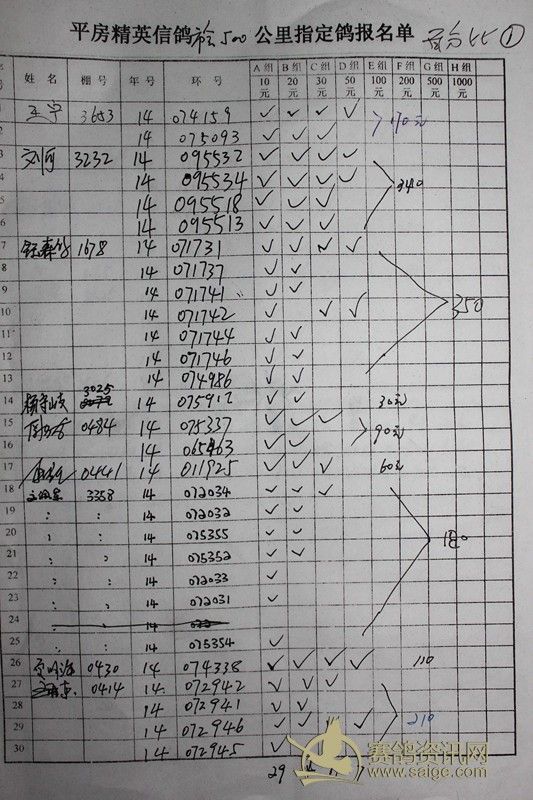 平房精英信鸽 500 公里指定鸽报名单 ①
姓名 棚号 年号 环号 A组 10元 B组 20元 C组 30元 D组 50元 E组 100元 F组 200元 G组 500元 H组 1000元
王宁 3653 14 074159 ✓ ✓ ✓ ✓ 170元
2 14 075093 ✓ ✓ ✓
3 3232 14 095532 ✓ ✓ ✓ ✓
4 14 095534 ✓ ✓ ✓ ✓ 340
5 14 095518 ✓ ✓ ✓
6 14 095513 ✓ ✓ ✓
7 1678 14 071731 ✓ ✓ ✓ ✓
8 14 071737 ✓ ✓
9 14 071741 ✓ ✓
10 14 071742 ✓ ✓ 350
11 14 071744 ✓ ✓
12 14 071746 ✓ ✓
13 14 074986 ✓ ✓
14 3025 14 075912 ✓ ✓ 30元
15 0484 14 075337 ✓ ✓ ✓ 90元
16 14 065463 ✓ ✓
17 0441 14 011925 ✓ ✓ ✓ 60元
18 3358 14 072034 ✓ ✓ ✓
19 : : 14 072032 ✓ ✓
20 : : 14 075355 ✓ ✓
21 : : 14 075352 ✓ ✓ 180
22 : : 14 072033 ✓
23 : : 14 072031 ✓
24 : 14
25 : : 14 075354 ✓
26 0430 14 074338 ✓ ✓ ✓ ✓ 110
27 0414 14 072942 ✓ ✓ ✓
28 14 072941 ✓ ✓
29 14 072946 ✓ ✓ ✓ ✓ 210
30 14 072945 ✓
29
赛鸽资讯网
www.saige.com